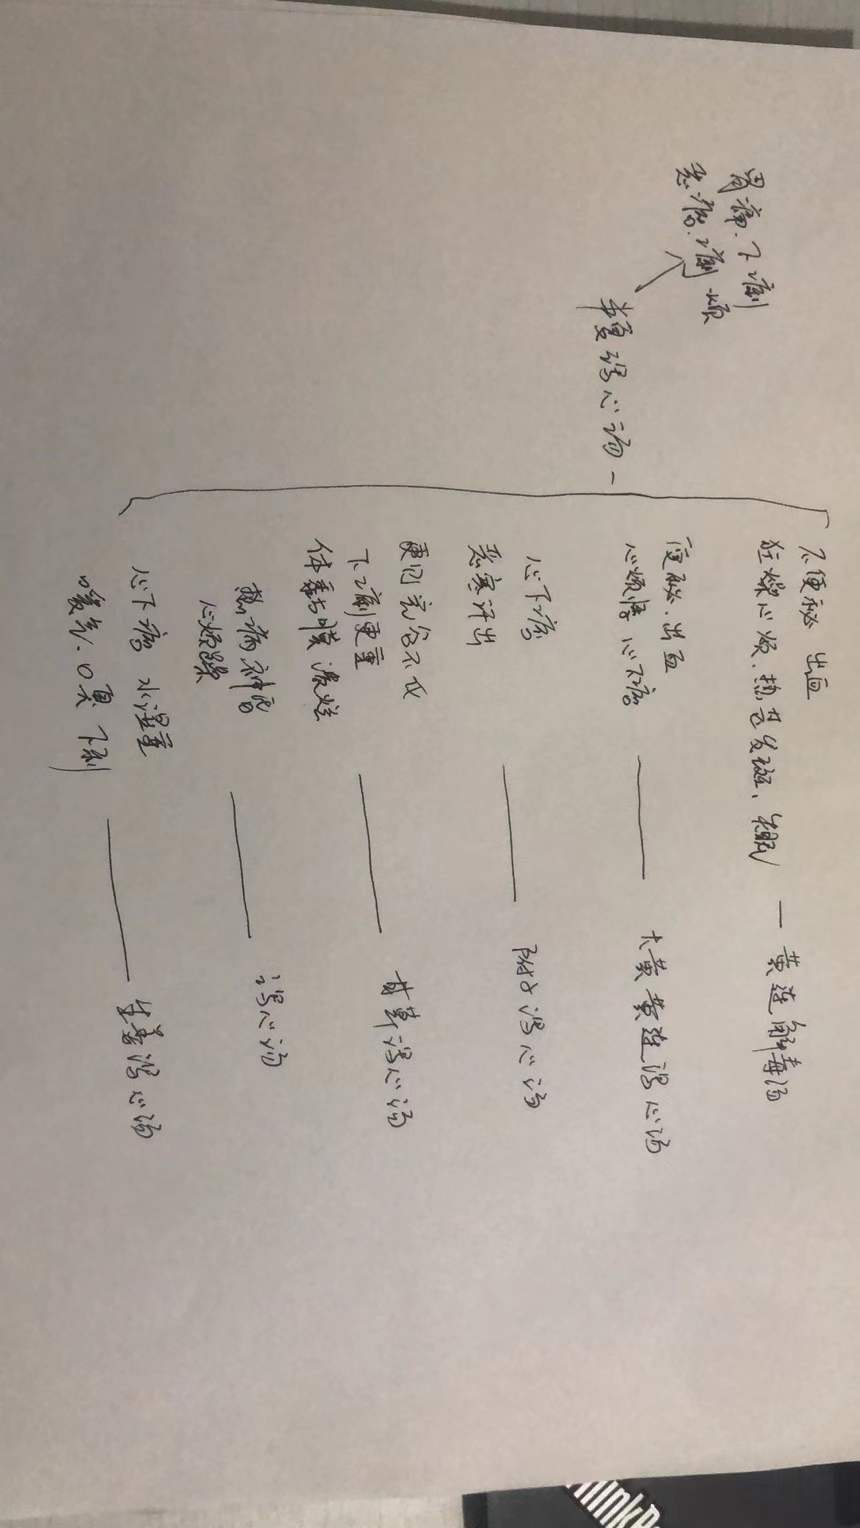 胃痛、下利
恶心呕、下利 烦
半夏泻心汤
不便秘 出血
狂燥心烦、热甚发斑、失眠 — 黄连解毒汤
便秘、出血
心烦悸 心下痞 — 大黄黄连泻心汤
心下痞
恶寒汗出 — 附子泻心汤
更切完谷不化
下利更重
体黏膜溃烂 — 甘草泻心汤
热病神昏
心烦躁 — 泻心汤
心下痞 水湿重
嗳气、口臭 下利 — 生姜泻心汤
ThinkP